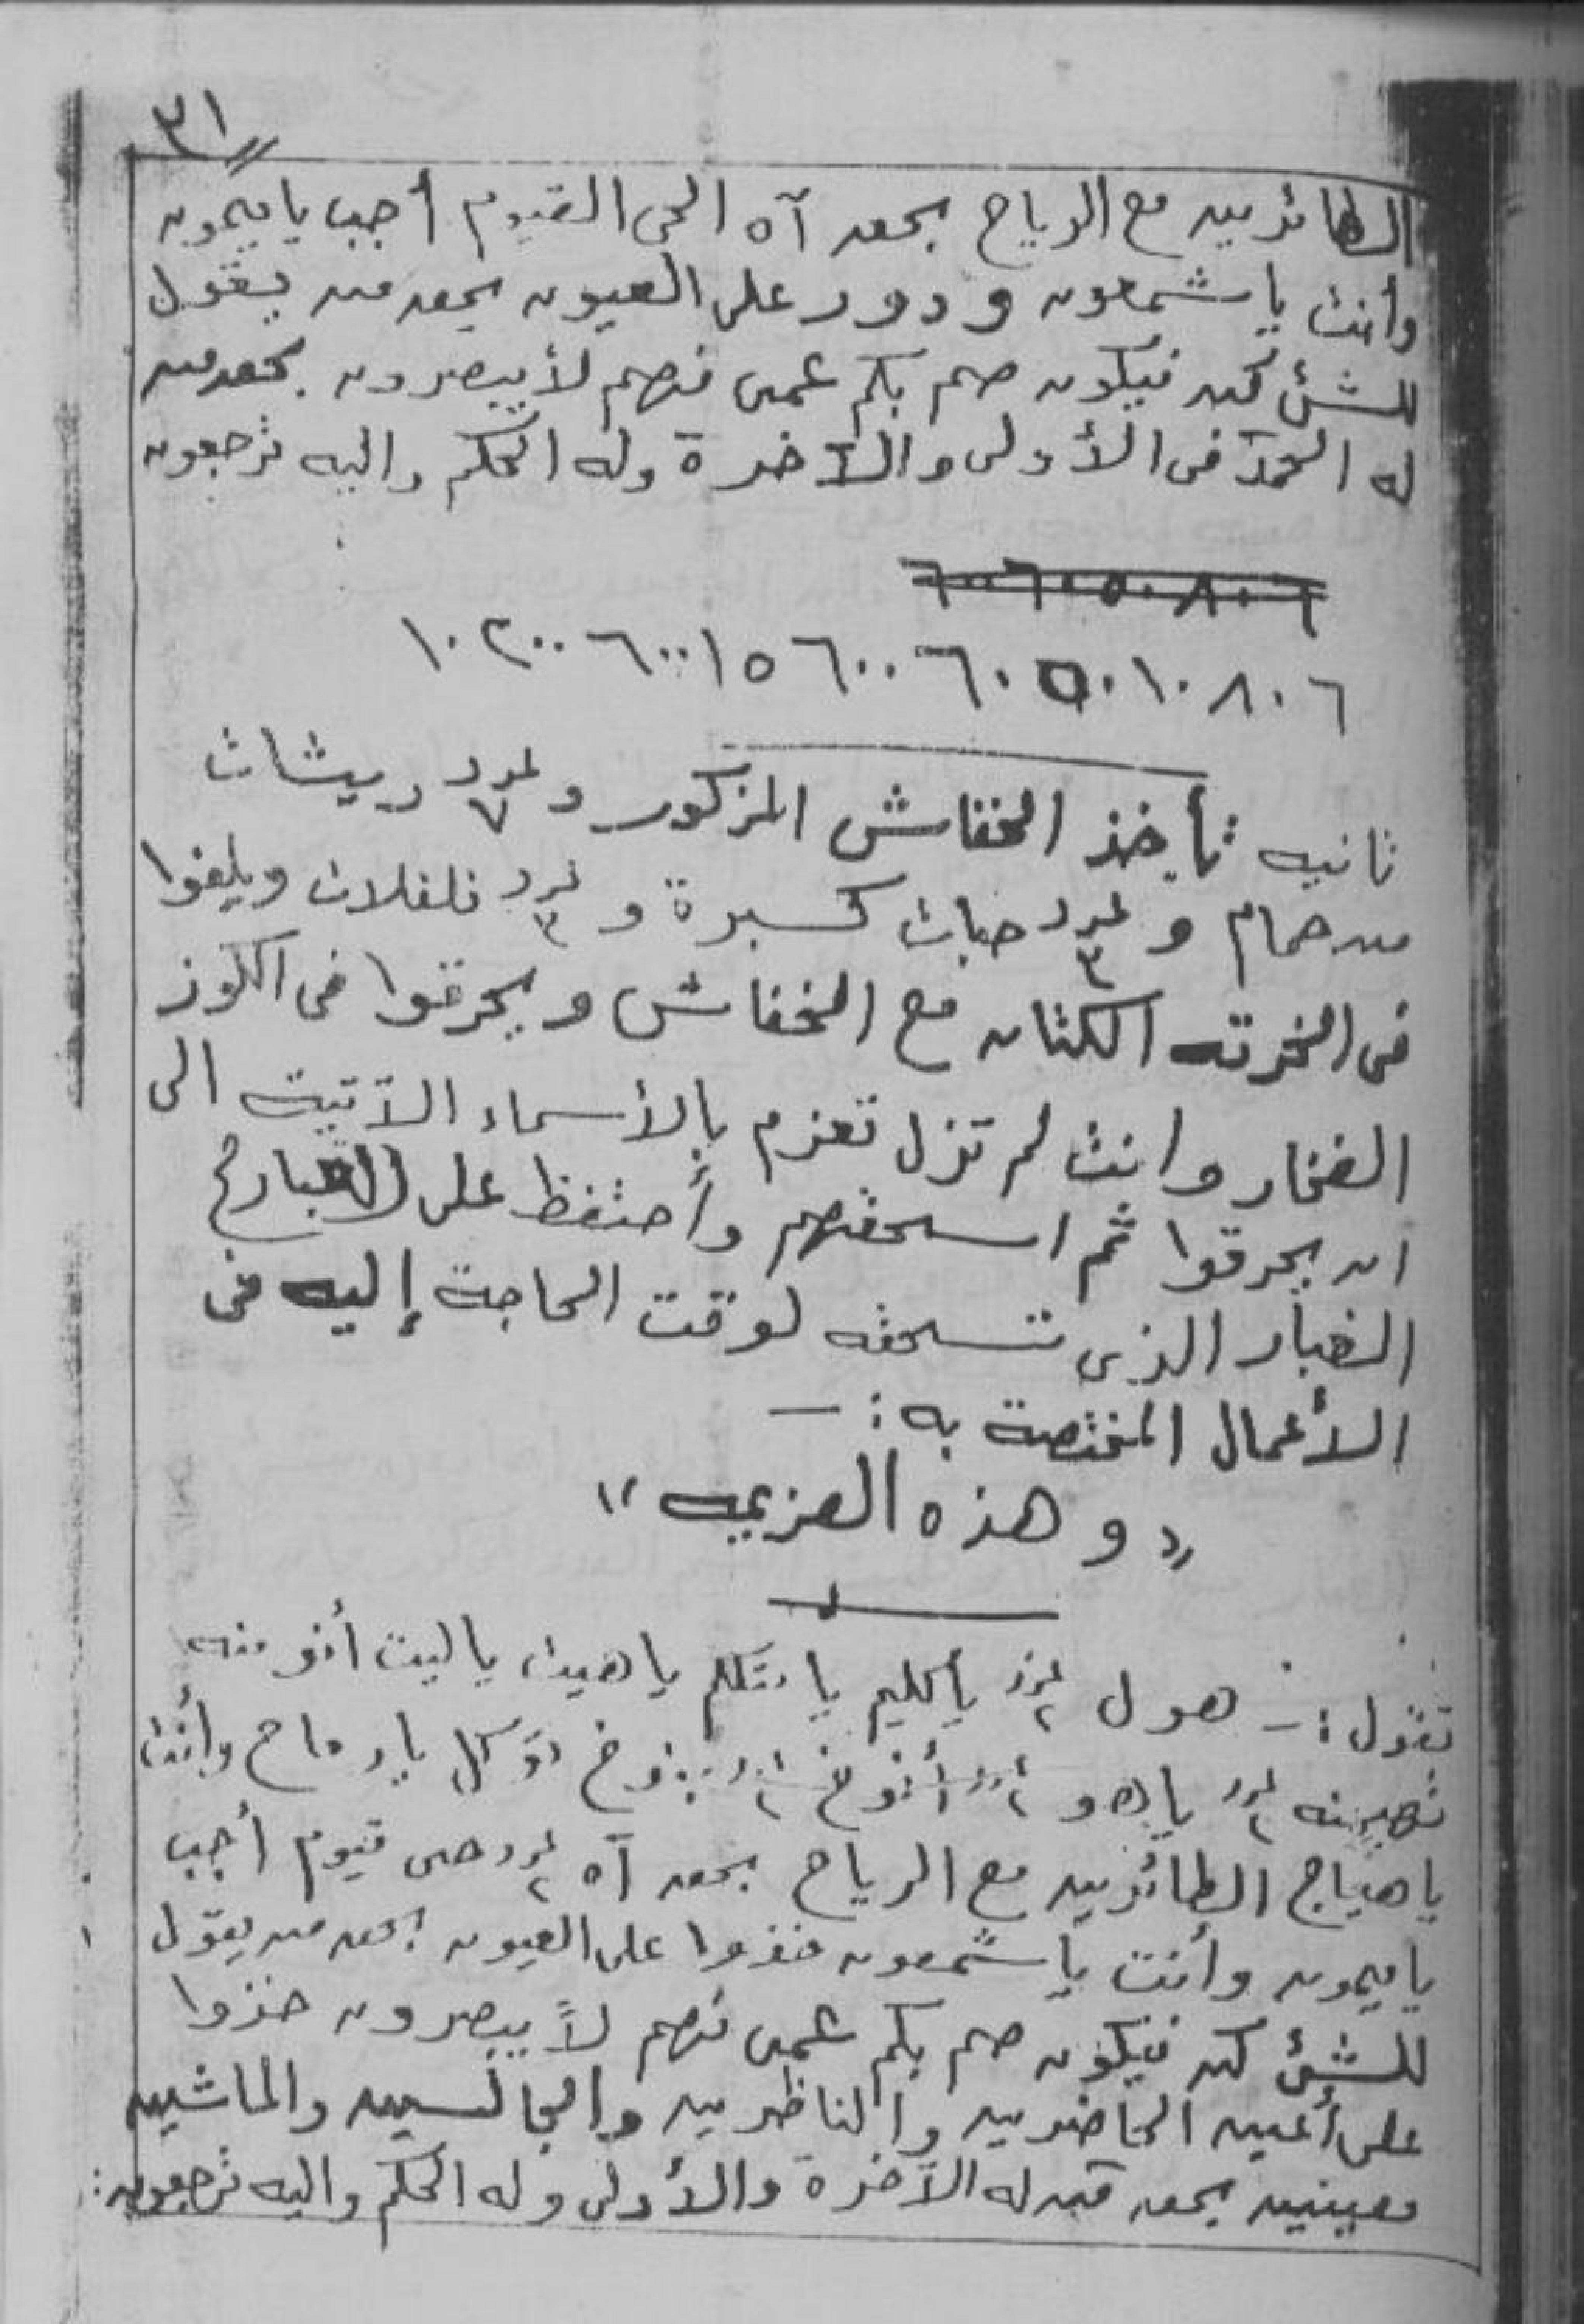 ٣١
الطائرين مع الرياح بحق آه الحى القيوم أجب يا ميمون
وأنت يا شمعون ودور على العيون بحق من يقول
للشئ كن فيكون صم بكم عمى فهم لا يبصرون بحق من
له الحمد فى الأولى والآخرة وله الحكم واليه ترجعون
٦٠٠٦٠٥٠٨٠٦
٦٠٨٠١٠٥٠٦٠٦٠٠١٥٦٠٠٢٠٠١٠
ثانيه تأخذ الخفاش المزكور وعدد ٧ ريشات
من حمام وعدد ٣ حبات كسبرة وعدد ٣ فلفلات ويلفوا
فى الخرقه الكتان مع الخفاش ويحرقوا فى الكوز
الفخار وانت لم تزل تعزم بالأسماء الآتية الى
ان يحرقوا ثم اسحقهم وأحتفظ على
الغبار الذى تسحقه لوقت الحاجة إليه فى
الأعمال المختصة به :ـ
" وهذه العزيمه "
تقول :ـ هول عدد ٢ يا متكلم يا هيت يا ليت
عدد ٢ ياهو عدد ٢ أنوخ عدد ٢ توكل يا رماح وأنت
يا هياج الطائرين مع الرياح بحق آه عدد ٢ حى قيوم أجب
يا ميمون وأنت يا شمعون خذوا على العيون بحق من يقول
للشئ كن فيكون صم بكم عمى فهم لا يبصرون خذوا
على أعين الحاضرين والناظرين والجالسين والماشين
بحق من له الآخرة والأولى وله الحكم واليه ترجعون :